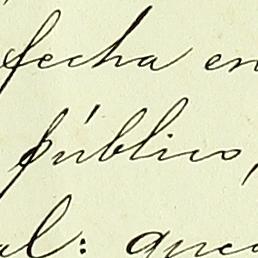 fecha en
público,
al: que